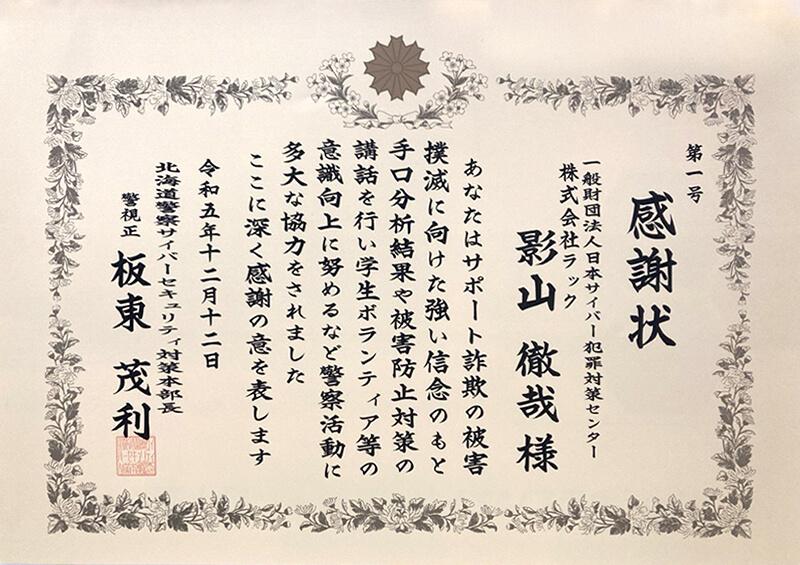 第一号
感謝状
一般財団法人日本サイバー犯罪対策センター
株式会社ラック
影山 徹哉 様
あなたはサポート詐欺の被害
撲滅に向けた強い信念のもと
手口分析結果や被害防止対策の
講話を行い学生ボランティア等の
意識向上に努めるなど警察活動に
多大な協力をされました
ここに深く感謝の意を表します
令和五年十二月十二日
北海道警察サイバーセキュリティ対策本部長
警視正 板東 茂利